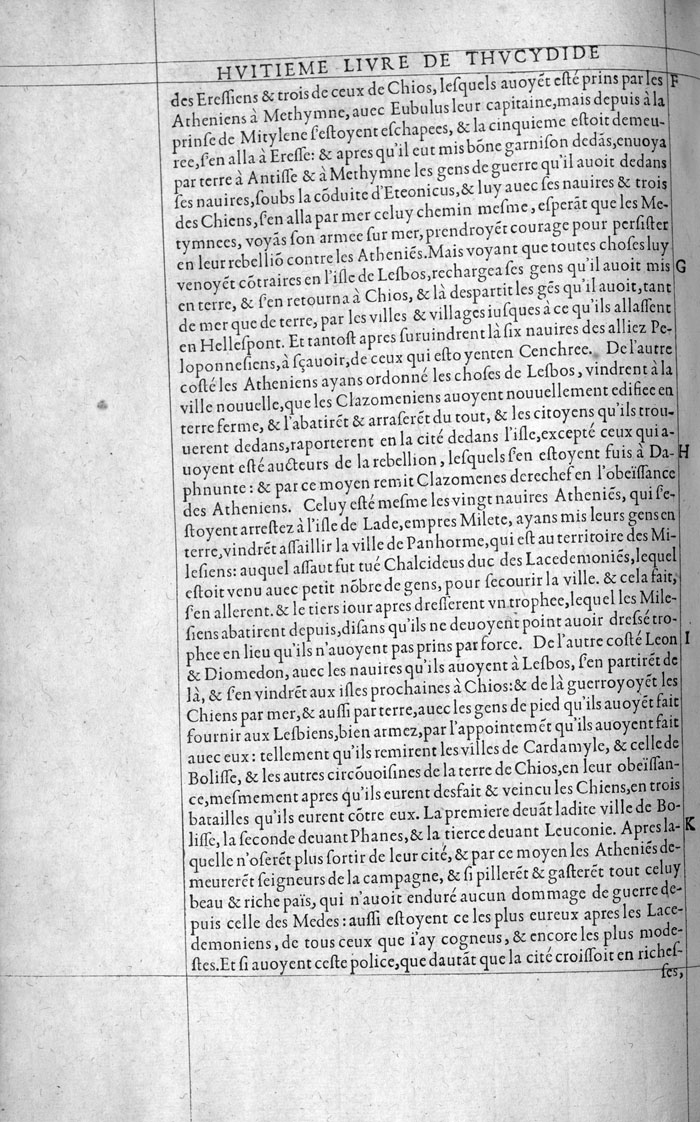 HVITIEME LIVRE DE THVCYDIDE
des Ereſſiens & trois de ceux de Chios, leſquels auoyẽt eſté prins par les F
Atheniens à Methymne, auec Eubulus leur capitaine, mais depuis à la
prinſe de Mitylene ſ'eſtoyent eſchapees, & la cinquieme eſtoit demeu-
ree, ſ'en alla à Ereſſe: & apres qu'il eut mis bõne garniſon dedãs, enuoya
par terre à Antiſſe & à Methymne les gens de guerre qu'il auoit dedans
ſes nauires, ſoubs la cõduite d'Eteonicus, & luy auec ſes nauires & trois
des Chiens, ſ'en alla par mer celuy chemin meſme, eſperãt que les Me-
tymnees, voyãs ſon armee ſur mer, prendroyẽt courage pour perſiſter
en leur rebelliõ contre les Atheniẽs. Mais voyant que toutes choſes luy
venoyẽt cõtraires en l'iſle de Leſbos, rechargea ſes gens qu'il auoit mis G
en terre, & ſ'en retourna à Chios, & là deſpartit les gẽs qu'il auoit, tant
de mer que de terre, par les villes & villages iuſques à ce qu'ils allaſſent
en Helleſpont. Et tantoſt apres ſuruindrent là ſix nauires des alliez Pe-
loponneſiens, à ſçauoir, de ceux qui eſtoyent en Cenchree. De l'autre
coſté les Atheniens ayans ordonné les choſes de Leſbos, vindrent à la
ville nouuelle, que les Clazomeniens auoyent nouuellement edifiee en
terre ferme, & l'abatirẽt & arraſerẽt du tout, & les citoyens qu'ils trou-
uerent dedans, raporterent en la cité dedans l'iſle, excepté ceux qui a-
uoyent eſté aucteurs de la rebellion, leſquels ſ'en eſtoyent fuis à Da- H
phnunte: & par ce moyen remit Clazomenes derechef en l'obeïſſance
des Atheniens. Celuy eſté meſme les vingt nauires Atheniẽs, qui ſ'e-
ſtoyent arreſtez à l'iſle de Lade, empres Milete, ayans mis leurs gens en
terre, vindrẽt aſſaillir la ville de Panhorme, qui eſt au territoire des Mi-
leſiens: auquel aſſaut fut tué Chalcideus duc des Lacedemoniẽs, lequel
eſtoit venu auec petit nõbre de gens, pour ſecourir la ville. & cela fait,
ſ'en allerent. & le tiers iour apres dreſſerent vn trophee, lequel les Mile-
ſiens abatirent depuis, diſans qu'ils ne deuoyent point auoir dreſsé tro-
phee en lieu qu'ils n'auoyent pas prins par force. De l'autre coſté Leon I
& Diomedon, auec les nauires qu'ils auoyent à Leſbos, ſ'en partirẽt de
là, & ſ'en vindrẽt aux iſles prochaines à Chios: & de là guerroyoyẽt les
Chiens par mer, & auſſi par terre, auec les gens de pied qu'ils auoyẽt fait
fournir aux Leſbiens, bien armez, par l'appointemẽt qu'ils auoyent fait
auec eux: tellement qu'ils remirent les villes de Cardamyle, & celle de
Boliſſe, & les autres circõuoiſines de la terre de Chios, en leur obeïſſan-
ce, meſmement apres qu'ils eurent desfait & veincu les Chiens, en trois
batailles qu'ils eurent cõtre eux. La premiere deuãt ladite ville de Bo-
liſſe, la ſeconde deuant Phanes, & la tierce deuant Leuconie. Apres la- K
quelle n'oſerẽt plus ſortir de leur cité, & par ce moyen les Atheniẽs de-
meurerẽt ſeigneurs de la campagne, & ſi pillerẽt & gaſterẽt tout celuy
beau & riche païs, qui n'auoit enduré aucun dommage de guerre de-
puis celle des Medes: auſſi eſtoyent ce les plus eureux apres les Lace-
demoniens, de tous ceux que i'ay cogneus, & encore les plus mode-
ſtes. Et ſi auoyent ceſte police, que dautãt que la cité croiſſoit en richeſ-
ſes,